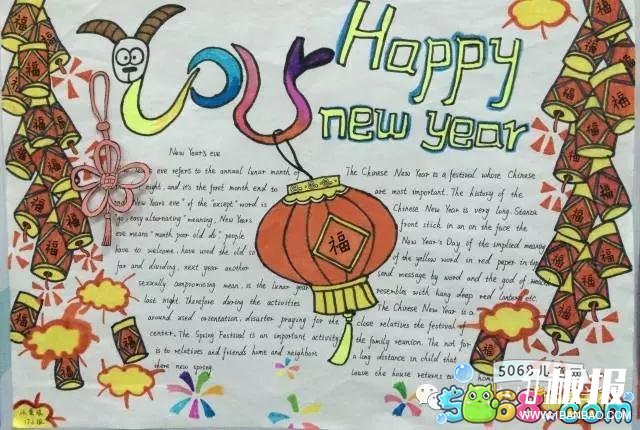 you
Happy
new year
New Year's eve
eve refers to the annual lunar month of
night, and it's the foret month end to
and New Years eve "of the "except" word is
"go, easy, alternating" meaning, New Years
eve means "month poor old do", people
have to welcome, have used the old so
far and dividing, next year another
sexually compromising mean, is the lunar year
last night. Therefore during the activities
around used orientation, disaster praying for the
center. The Spring Festival is an important activity
is to relatives and friends home and neighbors
there new spring.
The Chinese New Year is a festival whose Chinese
are most important. The history of the
Chinese New Year is very long, Stanza
front stick in an on the face the
New Year's Day of the implied meaning
of the yellow word in red paper in type
send message by word and the god of
resemble with hang deep red lantern etc.
The Chinese New Year is a
close relatives the festival
the family reunion. The not for
a long distance in child that
leave the house returns to home
福
福
福
福
福
福
福
5068儿
板报
5068.com
WWW.1BANBAO.COM